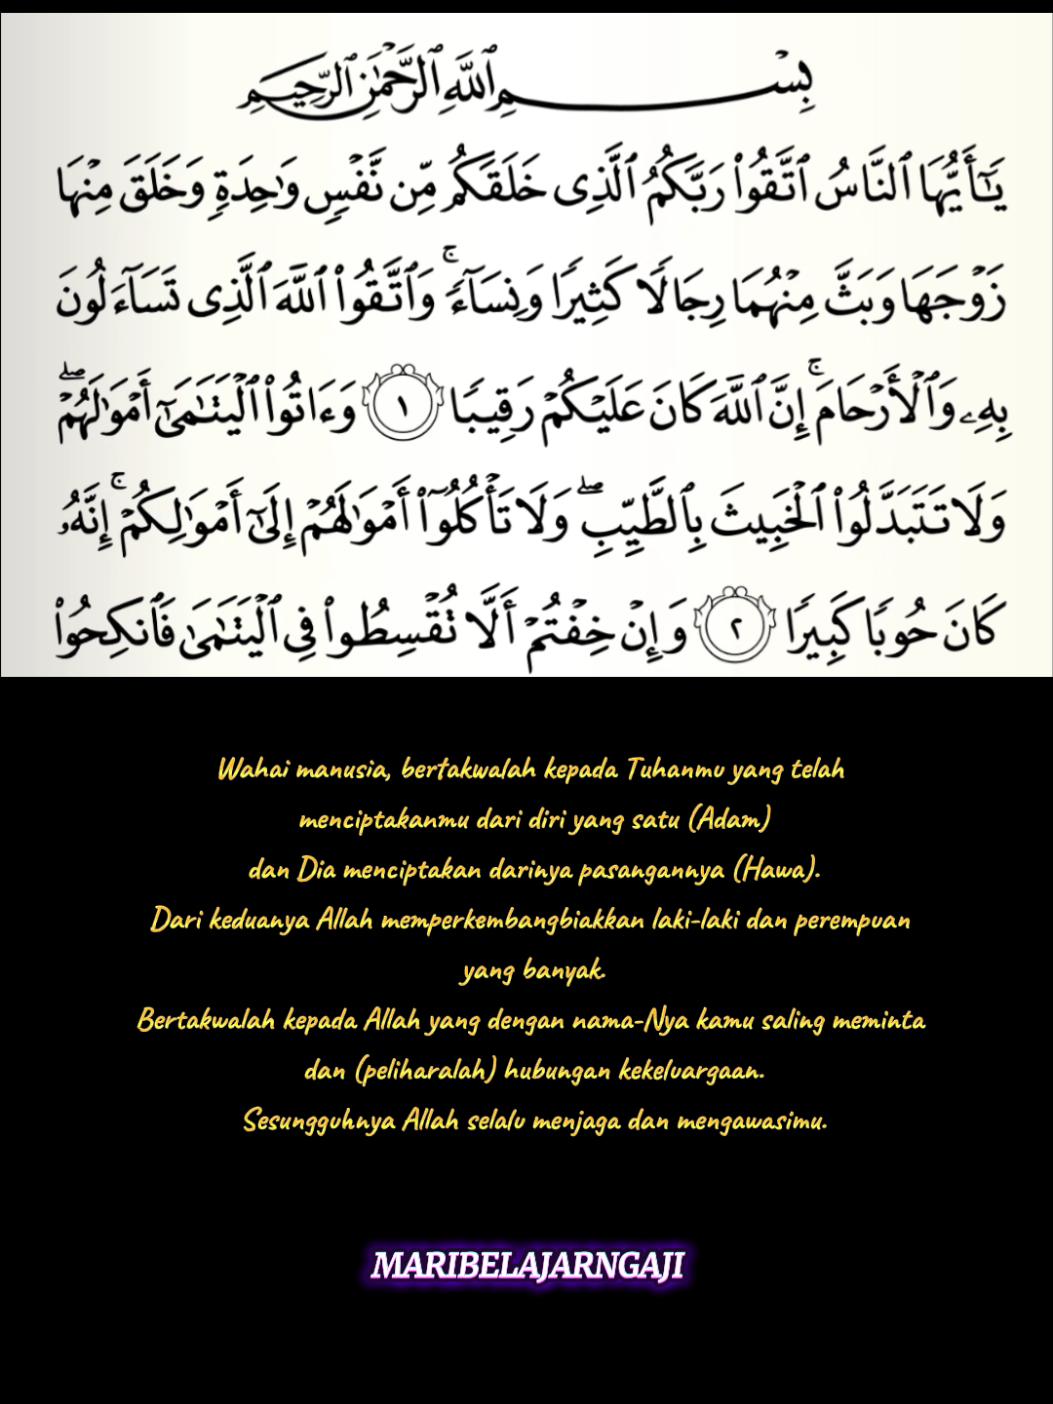 بِسْمِ ٱللَّهِ ٱلرَّحْمَٰنِ ٱلرَّحِيمِ
يَـٰٓأَيُّهَا ٱلنَّاسُ ٱتَّقُوا۟ رَبَّكُمُ ٱلَّذِى خَلَقَكُم مِّن نَّفْسٍ وَٰحِدَةٍ وَخَلَقَ مِنْهَا
زَوْجَهَا وَبَثَّ مِنْهُمَا رِجَالًا كَثِيرًا وَنِسَآءً ۚ وَٱتَّقُوا۟ ٱللَّهَ ٱلَّذِى تَسَآءَلُونَ
بِهِۦ وَٱلْأَرْحَامَ ۚ إِنَّ ٱللَّهَ كَانَ عَلَيْكُمْ رَقِيبًا ١ وَءَاتُوا۟ ٱلْيَتَـٰمَىٰٓ أَمْوَٰلَهُمْ ۖ
وَلَا تَتَبَدَّلُوا۟ ٱلْخَبِيثَ بِٱلطَّيِّبِ ۖ وَلَا تَأْكُلُوٓا۟ أَمْوَٰلَهُمْ إِلَىٰٓ أَمْوَٰلِكُمْ ۚ إِنَّهُۥ
كَانَ حُوبًا كَبِيرًا ٢ وَإِنْ خِفْتُمْ أَلَّا تُقْسِطُوا۟ فِى ٱلْيَتَـٰمَىٰ فَٱنكِحُوا۟
Wahai manusia, bertakwalah kepada Tuhanmu yang telah
menciptakanmu dari diri yang satu (Adam)
dan Dia menciptakan darinya pasangannya (Hawa).
Dari keduanya Allah memperkembangbiakkan laki-laki dan perempuan
yang banyak.
Bertakwalah kepada Allah yang dengan nama-Nya kamu saling meminta
dan (peliharalah) hubungan kekeluargaan.
Sesungguhnya Allah selalu menjaga dan mengawasimu.
MARIBELAJARNGAJI